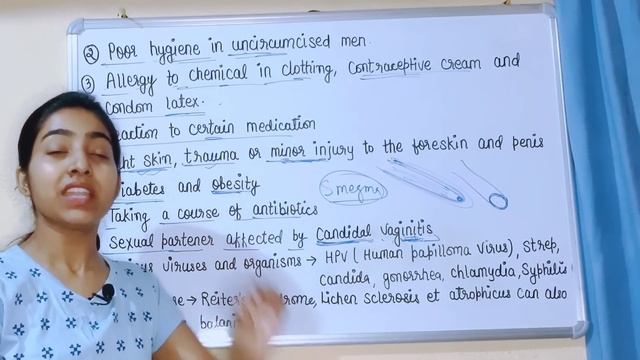 ② Poor hygiene in uncircumcised men.
③ Allergy to chemical in clothing, contraceptive cream and
condom latex.
to certain medication
skin, trauma or minor injury to the foreskin and penis
and obesity
Smegma
Taking a course of antibiotics
Sexual partener affected by Candidal vaginitis
viruses and organisms → HPV (Human papilloma virus), Strep,
candida, gonorrhea, chlamydia, Syphilis
→ Lichen sclerosis et atrophicus can also